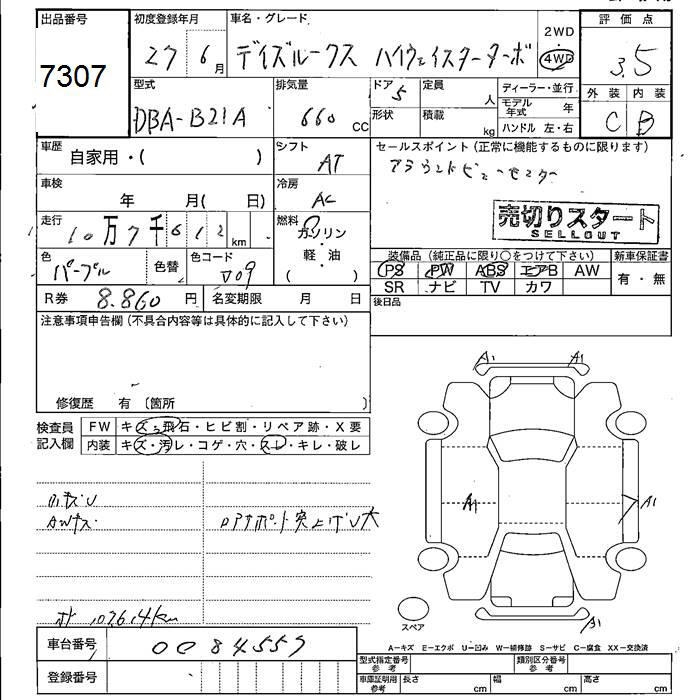 出品番号
7307
初度登録年月
27 6月
車名・グレード
デイズルークス ハイウェイスターターボ
2WD
4WD
評価点
3.5
外装 内装
C B
型式
DBA-B21A
排気量
660 cc
ドア 5
形状
定員 人
積載 kg
ディーラー・並行
モデル年式 年
ハンドル 左・右
車歴
自家用・( )
シフト
AT
セールスポイント(正常に機能するものに限ります)
アラウンドビューモニター
売切りスタート
SELLOUT
車検
年 月( 日)
冷房
AC
走行
10万7千612km
燃料
ガソリン
軽・油
( )
色
パープル
色替
色コード
装備品(純正品に限り○をつけて下さい)
新車保証書
PS PW ABS エアB AW
SR ナビ TV カワ
有・無
R券 8.860円
名変期限 月 日
後日品
注意事項申告欄(不具合内容等は具体的に記入して下さい)
修復歴 有 (箇所 )
検査員記入欄
FW キズ・飛石・ヒビ割・リペア跡・X要
内装 キズ・汚レ・コゲ・穴・スレ・キレ・破レ
AWキズ
A1 A1
A1
A1
A1
スペア
A−キズ E−エクボ U−凹み W−補修跡 S−サビ C−腐食 XX−交換済
車台番号 0084557
登録番号
型式指定番号 参考
類別区分番号 参考
車庫証明用 参考
長さ cm
幅 cm
高さ cm